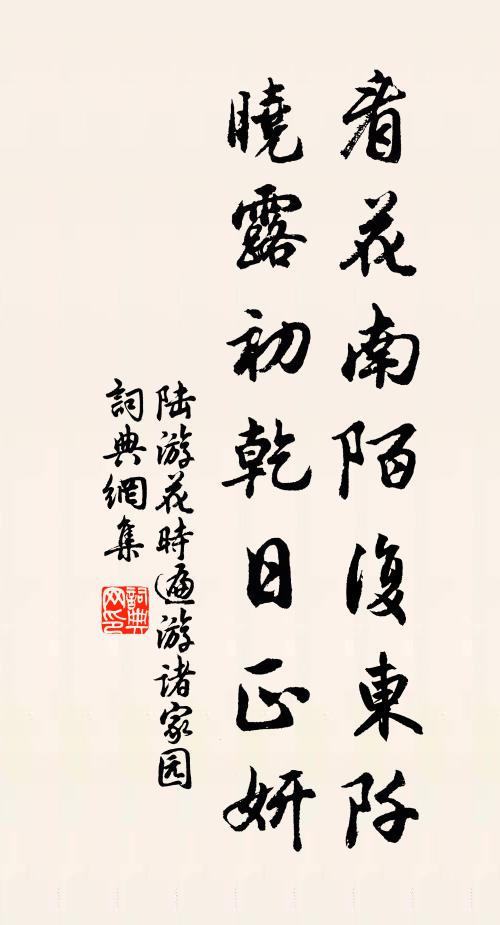 看花南陌復東阡
曉露初乾日正妍
陆游花時遍游诸家园
詞典網集
詞典网印